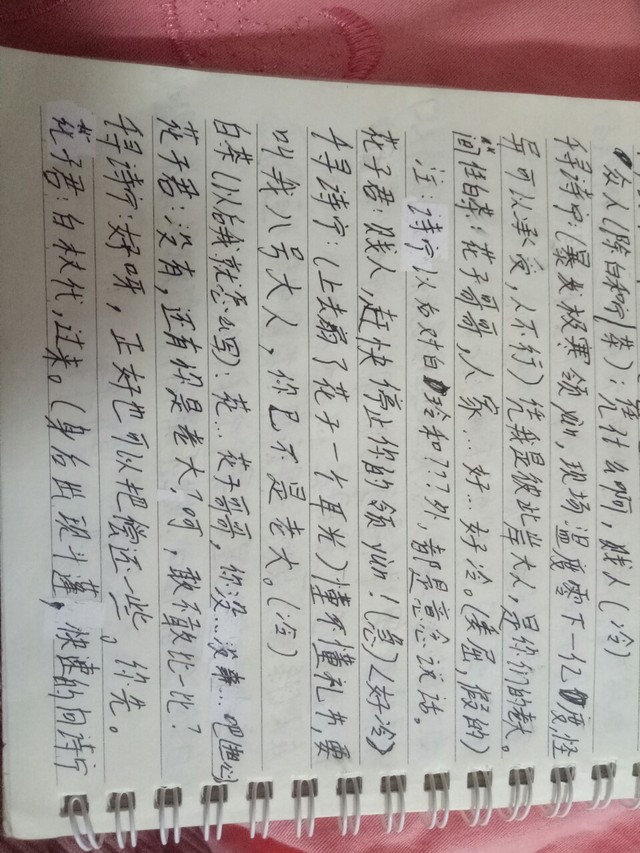 众人(除白和宁茶):凭什么啊,贱人(冷)
千寻诗宁:(暴发极寒领yin,现场温度零下一亿度,怪
异可以承受,人不行)凭我是彼此岸大人,是你们的老大。
间任白茶:花子哥哥,人家…好…好冷。(委屈,假的)
注:诗宁以为对白铃和???外,都是意念说话。
花子君:贱人,赶快停止你的领yin!(急)(好冷)
千寻诗宁:(上去扇了花子一个耳光)懂不懂礼书,要
叫我八号大人,你已不是老大。(冷)
白茶(以后我就怎么写):花…花子哥哥,你没…没事…吧(担心)
花子君:没有,还有你是老大?呵,敢不敢比一比?
千寻诗宁:好呀,正好也可以把偿还一些。你先。
花子君:白杖代,过来。(身台出现斗篷,快速的向诗宁